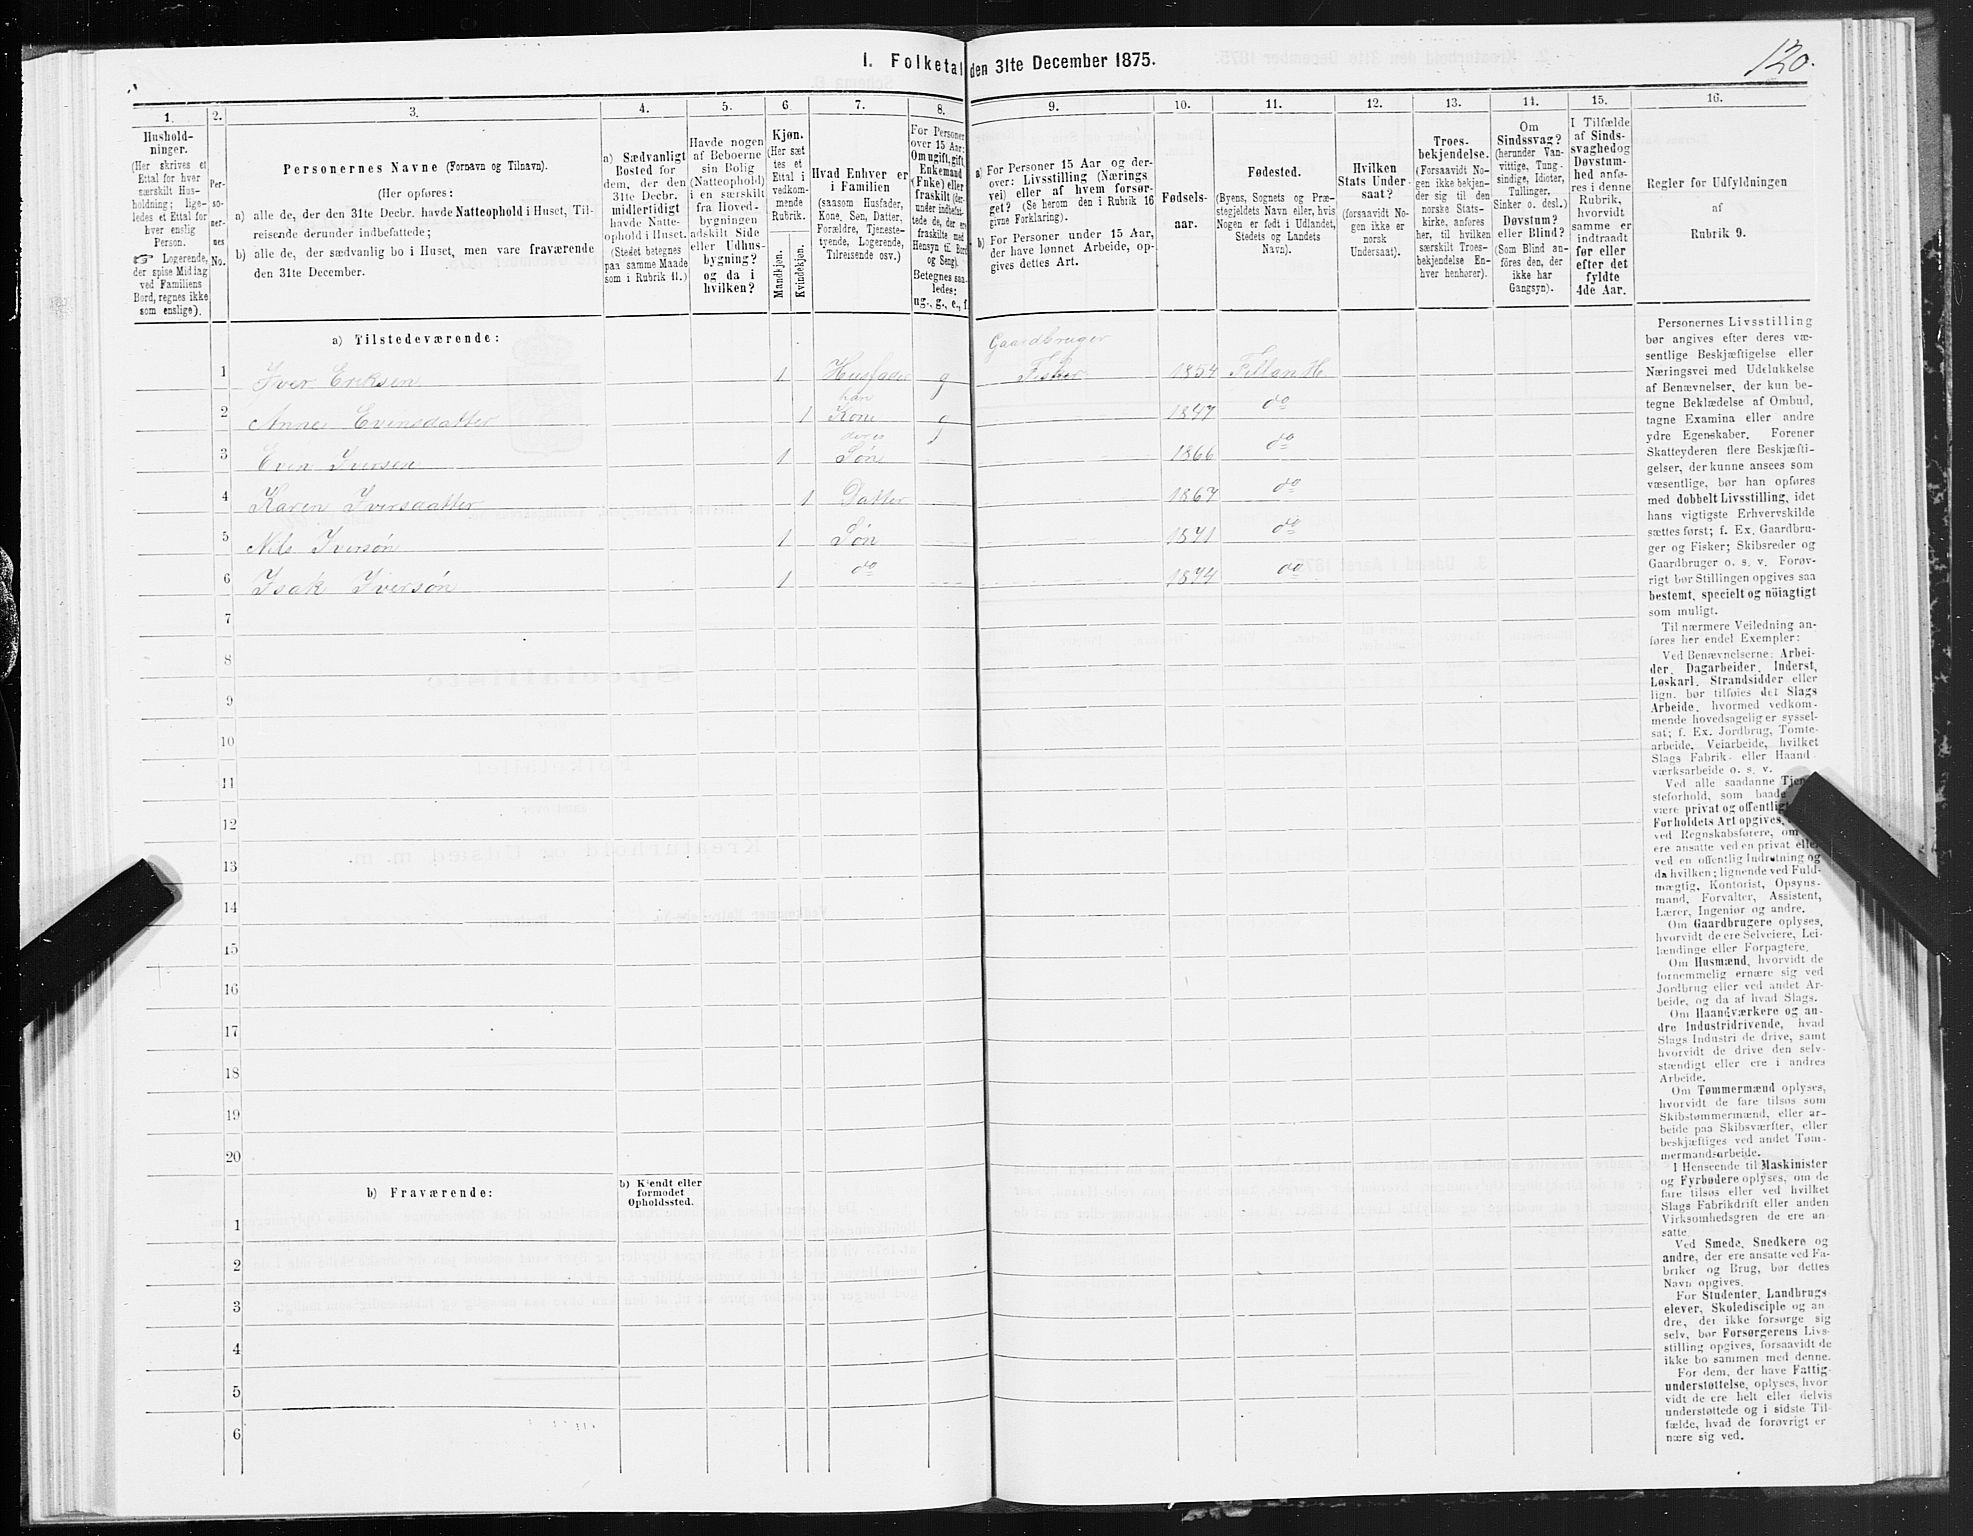 120.
I. Folketal den 31te December 1875.
1. 2. 3. 4. 5. 6 7. 8. 9. 10. 11. 12. 13. 14. 15. 16.
Hushold-
ninger.
(Her skrives et
Ettal for hver
særskilt Hus-
holdning; lige-
ledes et Ettal for
hver enslig
Person.
☞ Logerende,
der spise Middag
ved Familiens
Bord, regnes ikke
som enslige).
Per-
so-
ner-
nes
No.
Personernes Navne (Fornavn og Tilnavn).
(Her opføres:
a) alle de, der den 31te Decbr. havde Natteophold i Huset, Til-
reisende derunder indbefattede;
b) alle de, der sædvanlig bo i Huset, men vare fraværende
den 31te December.
a) Sædvanligt
Bosted for
dem, der den
31te Decbr.
midlertidigt
havde Natte-
ophold i Huset.
(Stedet betegnes
paa samme Maade
som i Rubrik 11.)
Havde nogen
af Beboerne
sin Bolig
(Natteophold)
i en særskilt
fra Hoved-
bygningen
adskilt Side
eller Udhus-
bygning?
og da i
hvilken?
Kjøn.
(Her sæt
tes et
Ettal i
vedkom-
mende
Rubrik.
Mandkjøn.
Kvindekjøn.
Hvad Enhver er
i Familien
(saasom Husfader,
Kone, Søn, Datter,
Forældre, Tjeneste-
tyende, Logerende,
Tilreisende osv.)
For Personer
over 15 Aar:
Om ugift, gift,
Enkemand
(Enke) eller
fraskilt (der-
under indbefat-
tede de, der ere
fraskilte med
Hensyn til Bord
og Seng).
Betegnes saa-
ledes:
ug., g., e., f.
a) For Personer 15 Aar og der-
over: Livsstilling (Nærings
vei) eller af hvem forsør-
get? (Se herom den i Rubrik 16
givne Forklaring).
b) For Personer under 15 Aar,
der have lønnet Arbeide, op-
gives dettes Art.
Fødsels-
aar.
Fødested.
(Byens, Sognets og Præ-
stegjeldets Navn eller, hvis
Nogen er født i Udlandet,
Stedets og Landets
Navn).
Hvilken
Stats Under-
saat?
(forsaavidt No-
gen ikke er
norsk
Undersaat).
Troes-
bekjendelse.
(Forsaavidt No-
gen ikke bekjen-
der sig til den
norske Stats-
kirke, anføres
her, til hvilken
særskilt Troes-
bekjendelse En-
hver henhører).
Om
Sindssvag?
(herunder Van-
vittige, Tung-
sindige, Idioter,
Tullinger,
Sinker o. desl.)
Døvstum?
eller Blind?
(Som Blind an-
føres den, der
ikke har
Gangsyn).
I Tilfælde
af Sinds-
svaghed og
Døvstum-
hed anfø-
res i denne
Rubrik,
hvorvidt
samme er
indtraadt
før eller
efter det
fyldte
4de Aar.
Regler for Udfyldningen
af
Rubrik 9.
a) Tilstedeværende:
Gaardbruger
1 Iver Eriksen 1 Husfader g Fisker Fillan H.
han
2 Evensdatter 1 Kone g do
deres
3 Even Iversen 1 Søn 1866 do
4 Karen Iversdatter 1 Datter 1867 do
5 Nils Iversøn 1 Søn do
6 Isak Iversøn 1 do do
7
8
9
10
11
12
13
14
15
16
17
18
19
20
b) Fraværende:
b) Kjendt eller
formodet
Opholdssted.
1
2
3
4
5
6
Personernes Livsstilling
bør angives efter deres væ-
sentlige Beskjæftigelse eller
Næringsvei med Udelukkelse
af Benævnelser, der kun be-
tegne Beklædelse af Ombud,
tagne Examina eller andre
ydre Egenskaber. Forener
Skatteyderen flere Beskjæfti-
gelser, der kunne ansees som
væsentlige, bør han opføres
med dobbelt Livsstilling, idet
hans vigtigste Erhvervskilde
sættes først; f. Ex. Gaardbru-
ger og Fisker; Skibsreder og
Gaardbruger o. s. v. Forøv-
rigt bør Stillingen opgives saa
bestemt, specielt og nöiagtigt
som muligt.
Til nærmere Veiledning an-
føres her endel Exempler:
Ved Benævnelserne: Arbei-
der, Dagarbeider, Inderst,
Løskarl, Strandsidder eller
lign. bør tilføies det Slags
Arbeide, hvormed vedkom-
mende hovedsagelig er syssel-
sat; f. Ex. Jordbrug, Tomte-
arbeide, Veiarbeide, hvilket
Slags Fabrik- eller Haand
værksarbeide o. s. v.
Ved alle saadanne
steforhold, som baade
være privat og offentligt
Forholdets Art opgives,
ved Regnskabsførere, om
ere ansatte ved en privat eller
ved en offentlig Indretning og
da hvilken; lignende ved Fuld-
mægtig, Kontorist, Opsyns-
mand, Forvalter, Assistent,
Lærer, Ingeniør og andre.
Om Gaardbrugere oplyses,
hvorvidt de ere Selveiere, Lei-
lændinge eller Forpagtere.
Om Husmænd, hvorvidt de
fornemmelig ernære sig ved
Jordbrug eller ved andet Ar-
beide, og da af hvad Slags.
Om Haandværkere og an-
dre Industridrivende, hvad
Slags Industri de drive, samt
hvorvidt de drive den selv-
stændigt eller ere i andres
Arbeide.
Om Tømmermænd oplyses,
hvorvidt de fare tilsøs som
Skibstømmermænd, eller ar-
beide paa Skibsværfter, eller
beskjæftiges ved andet Tøm-
mermandsarbeide.
I Henseende til Maskinister
og Fyrbødere oplyses, om de
fare tilsøs eller ved hvilket
Slags Fabrikdrift eller anden
Virksomhedsgren de ere an-
satte.
Ved Smede, Snedkere og
andre, der ere ansatte ved Fa-
briker og Brug, bør dettes
Navn opgives.
For Studenter, Landbrugs
elever, Skoledisciple og an-
dre, der ikke forsørge sig
selv, bør Forsørgerens Livs-
stilling opgives, forsaavidt de
ikke bo sammen med denne.
For dem, der have Fattig-
understøttelse, oplyses, hvor
vidt de ere helt eller delvis
understøttede og i sidste Til-
fælde, hvad de forøvrigt er
nære sig ved.